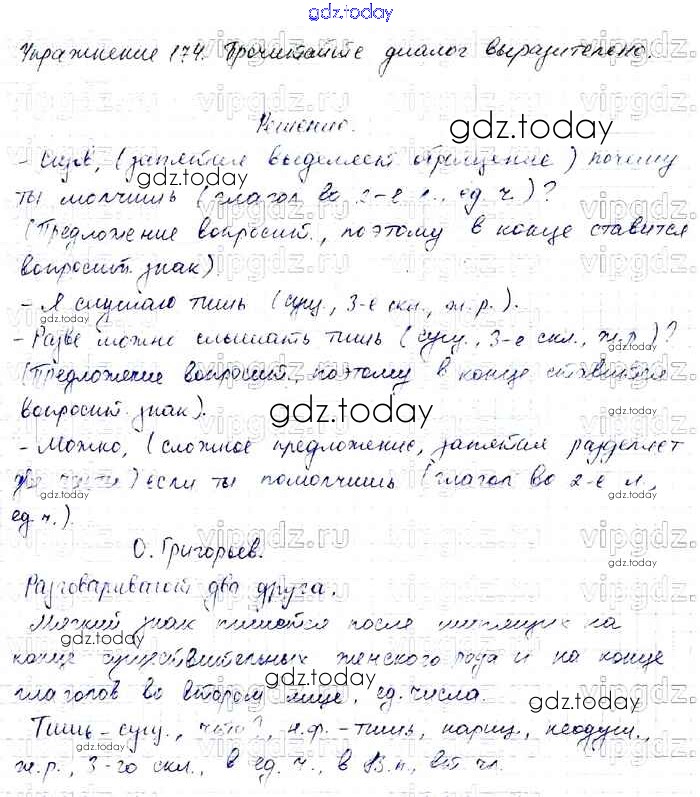 gdz.today
Упражнение 174. Прочитайте диалог выразительно.
Решение.
gdz.today
- (запятая выделяет обращение) почему
gdz.today
ты молчишь (глагол во 2-е л., ед. ч.)?
(Предложение вопросит., поэтому в конце ставится
вопросит. знак)
- Я слушаю тишь (сущ., 3-е скл., ж.р.).
gdz.today
- Разве можно слышать тишь (сущ., 3-е скл., ж.р.)?
(Предложение вопросит., поэтому в конце ставится
вопросит. знак).
gdz.today
- Можно, (сложное предложение, запятая разделяет
две части) если ты помолчишь (глагол во 2-е л.,
gdz.today
ед. ч.).
О. Григорьев.
gdz.today
Разговаривают два друга.
Мягкий знак пишется после шипящих на
gdz.today
конце существительных женского рода и на конце
глаголов во втором лице, ед. числа.
gdz.today
Тишь - сущ., что?, н.ф. - тишь, нариц., неодуш.,
gdz.today
ж.р., 3-го скл., в ед. ч., в В.п., вт. чл.